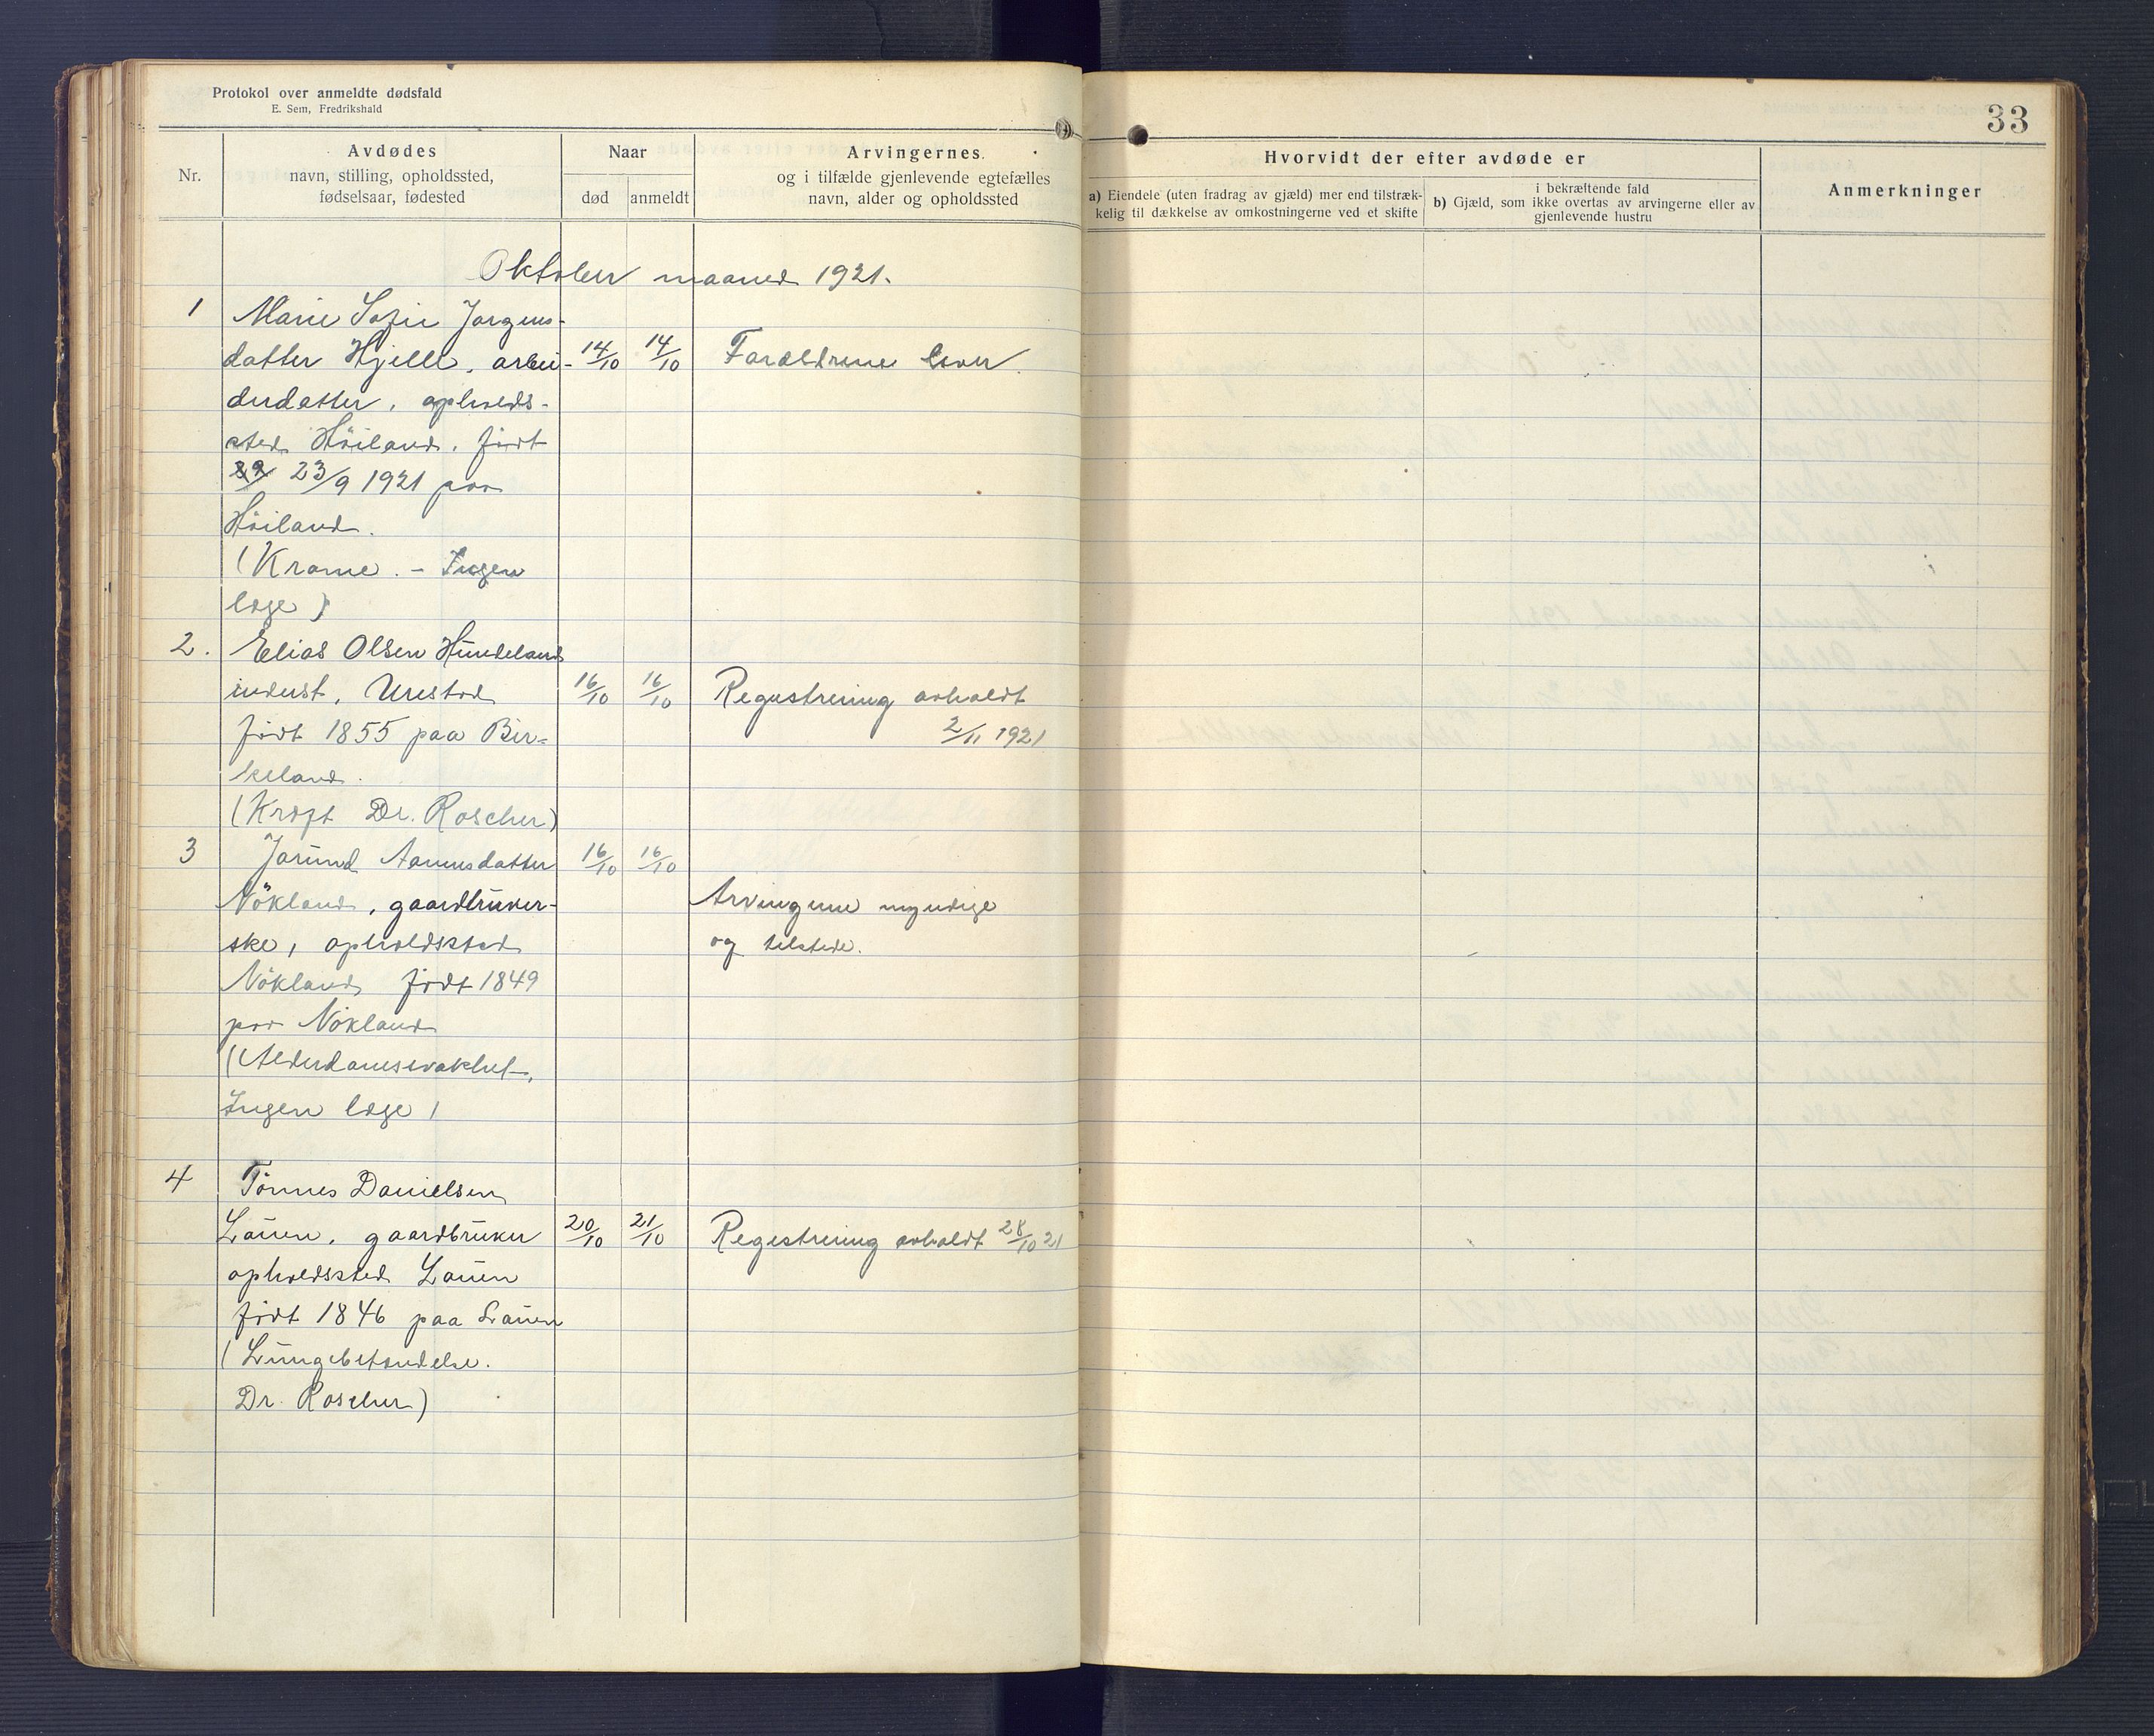 Protokol over anmeldte dødsfald
E. Sem, Fredrikshald
33
Nr.
Avdødes
navn, stilling, opholdssted,
fødselsaar, fødested
Naar
død
anmeldt
Arvingernes
og i tilfælde gjenlevende egtefælles
navn, alder og opholdssted
Hvorvidt der efter avdøde er
a) Eiendele (uten fradrag av gjæld) mer end tilstræk-
kelig til dækkelse av omkostningerne ved et skifte
i bekræftende fald
b) Gjæld, som ikke overtas av arvingerne eller av
gjenlevende hustru
Anmerkninger
Oktober maaned 1921.
1 Marie Sofie Jørgens-
datter Hjelle, arbei- 14/10 14/10 Forældrene lever.
derdatter, opholds-
sted Höiland, født
23/9 1921 paa
Höiland.
(Krampe. - Ingen
læge)
2. Elias Olsen Hundeland
inderst, Urestad 16/10 16/10 Registrering avholdt
født 1855 paa Bir- 2/11 1921
keland.
(Kræft Dr. Roscher)
3 Jorund Aanensdatter 16/10 16/10
Nökland, gaardbruker- Arvingene myndige
ske, opholdssted og tilstede.
Nökland født 1849
paa Nökland
(Alderdomssvakhet,
Ingen læge)
4 Tönnes Danielsen
Lauen, gaardbruker 20/10 21/10 Registrering avholdt 28/10 21
opholdssted Lauen
født 1846 paa Lauen
(Lungebetændelse.
Dr. Roscher)